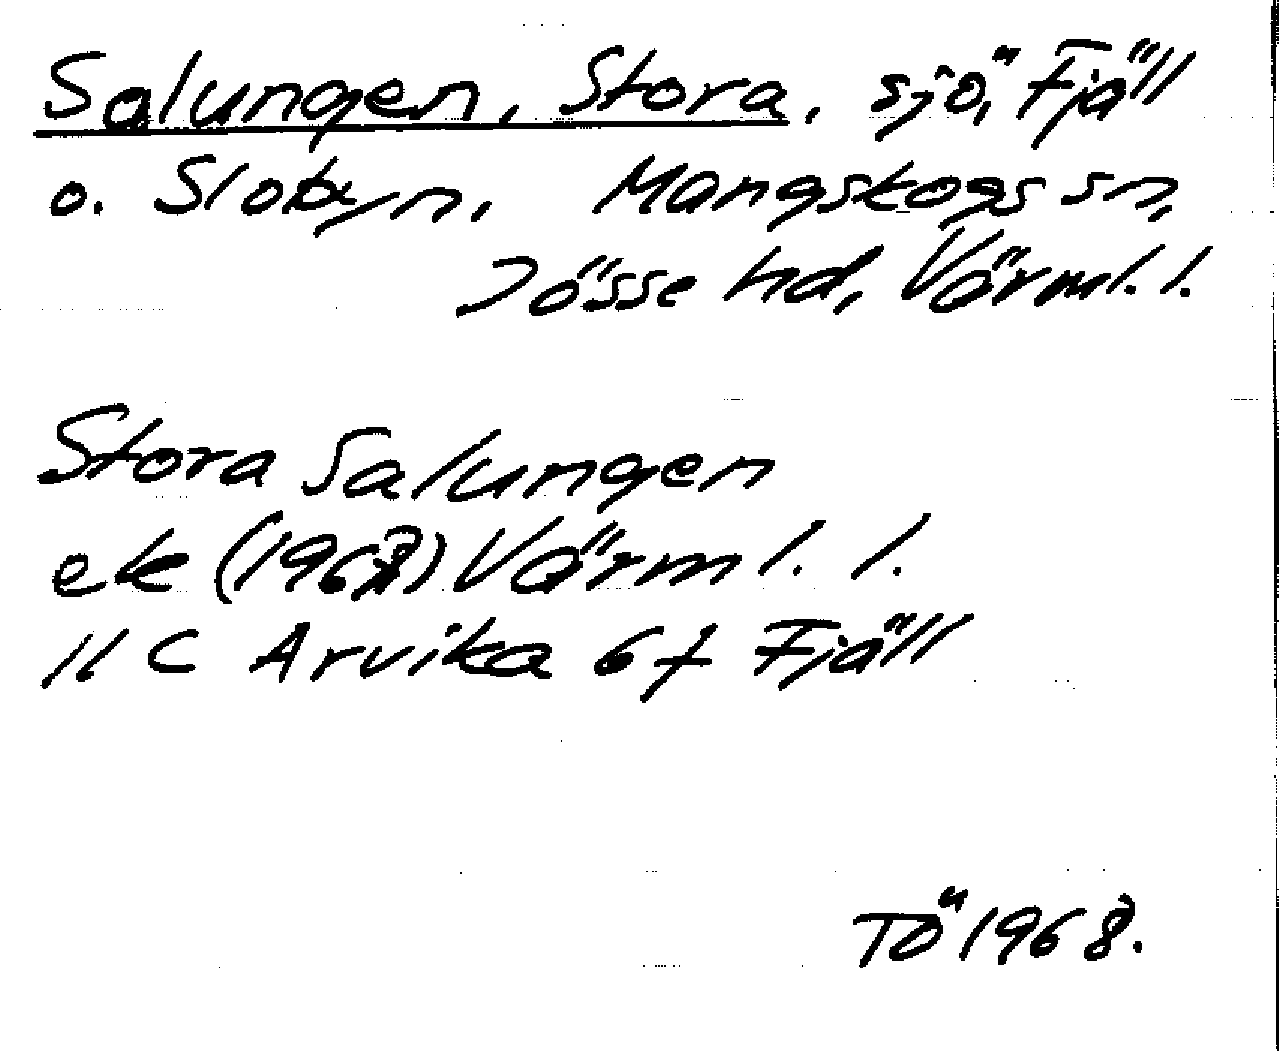 Salungen, Stora, sjö, Fjäll
o. Slobyn, Mangskogs sn,
Jösse hd, Värml. l.
Stora Salungen
ek (1967) Värml. l.
11 C Arvika 6 f Fjäll
TÖ 1968.